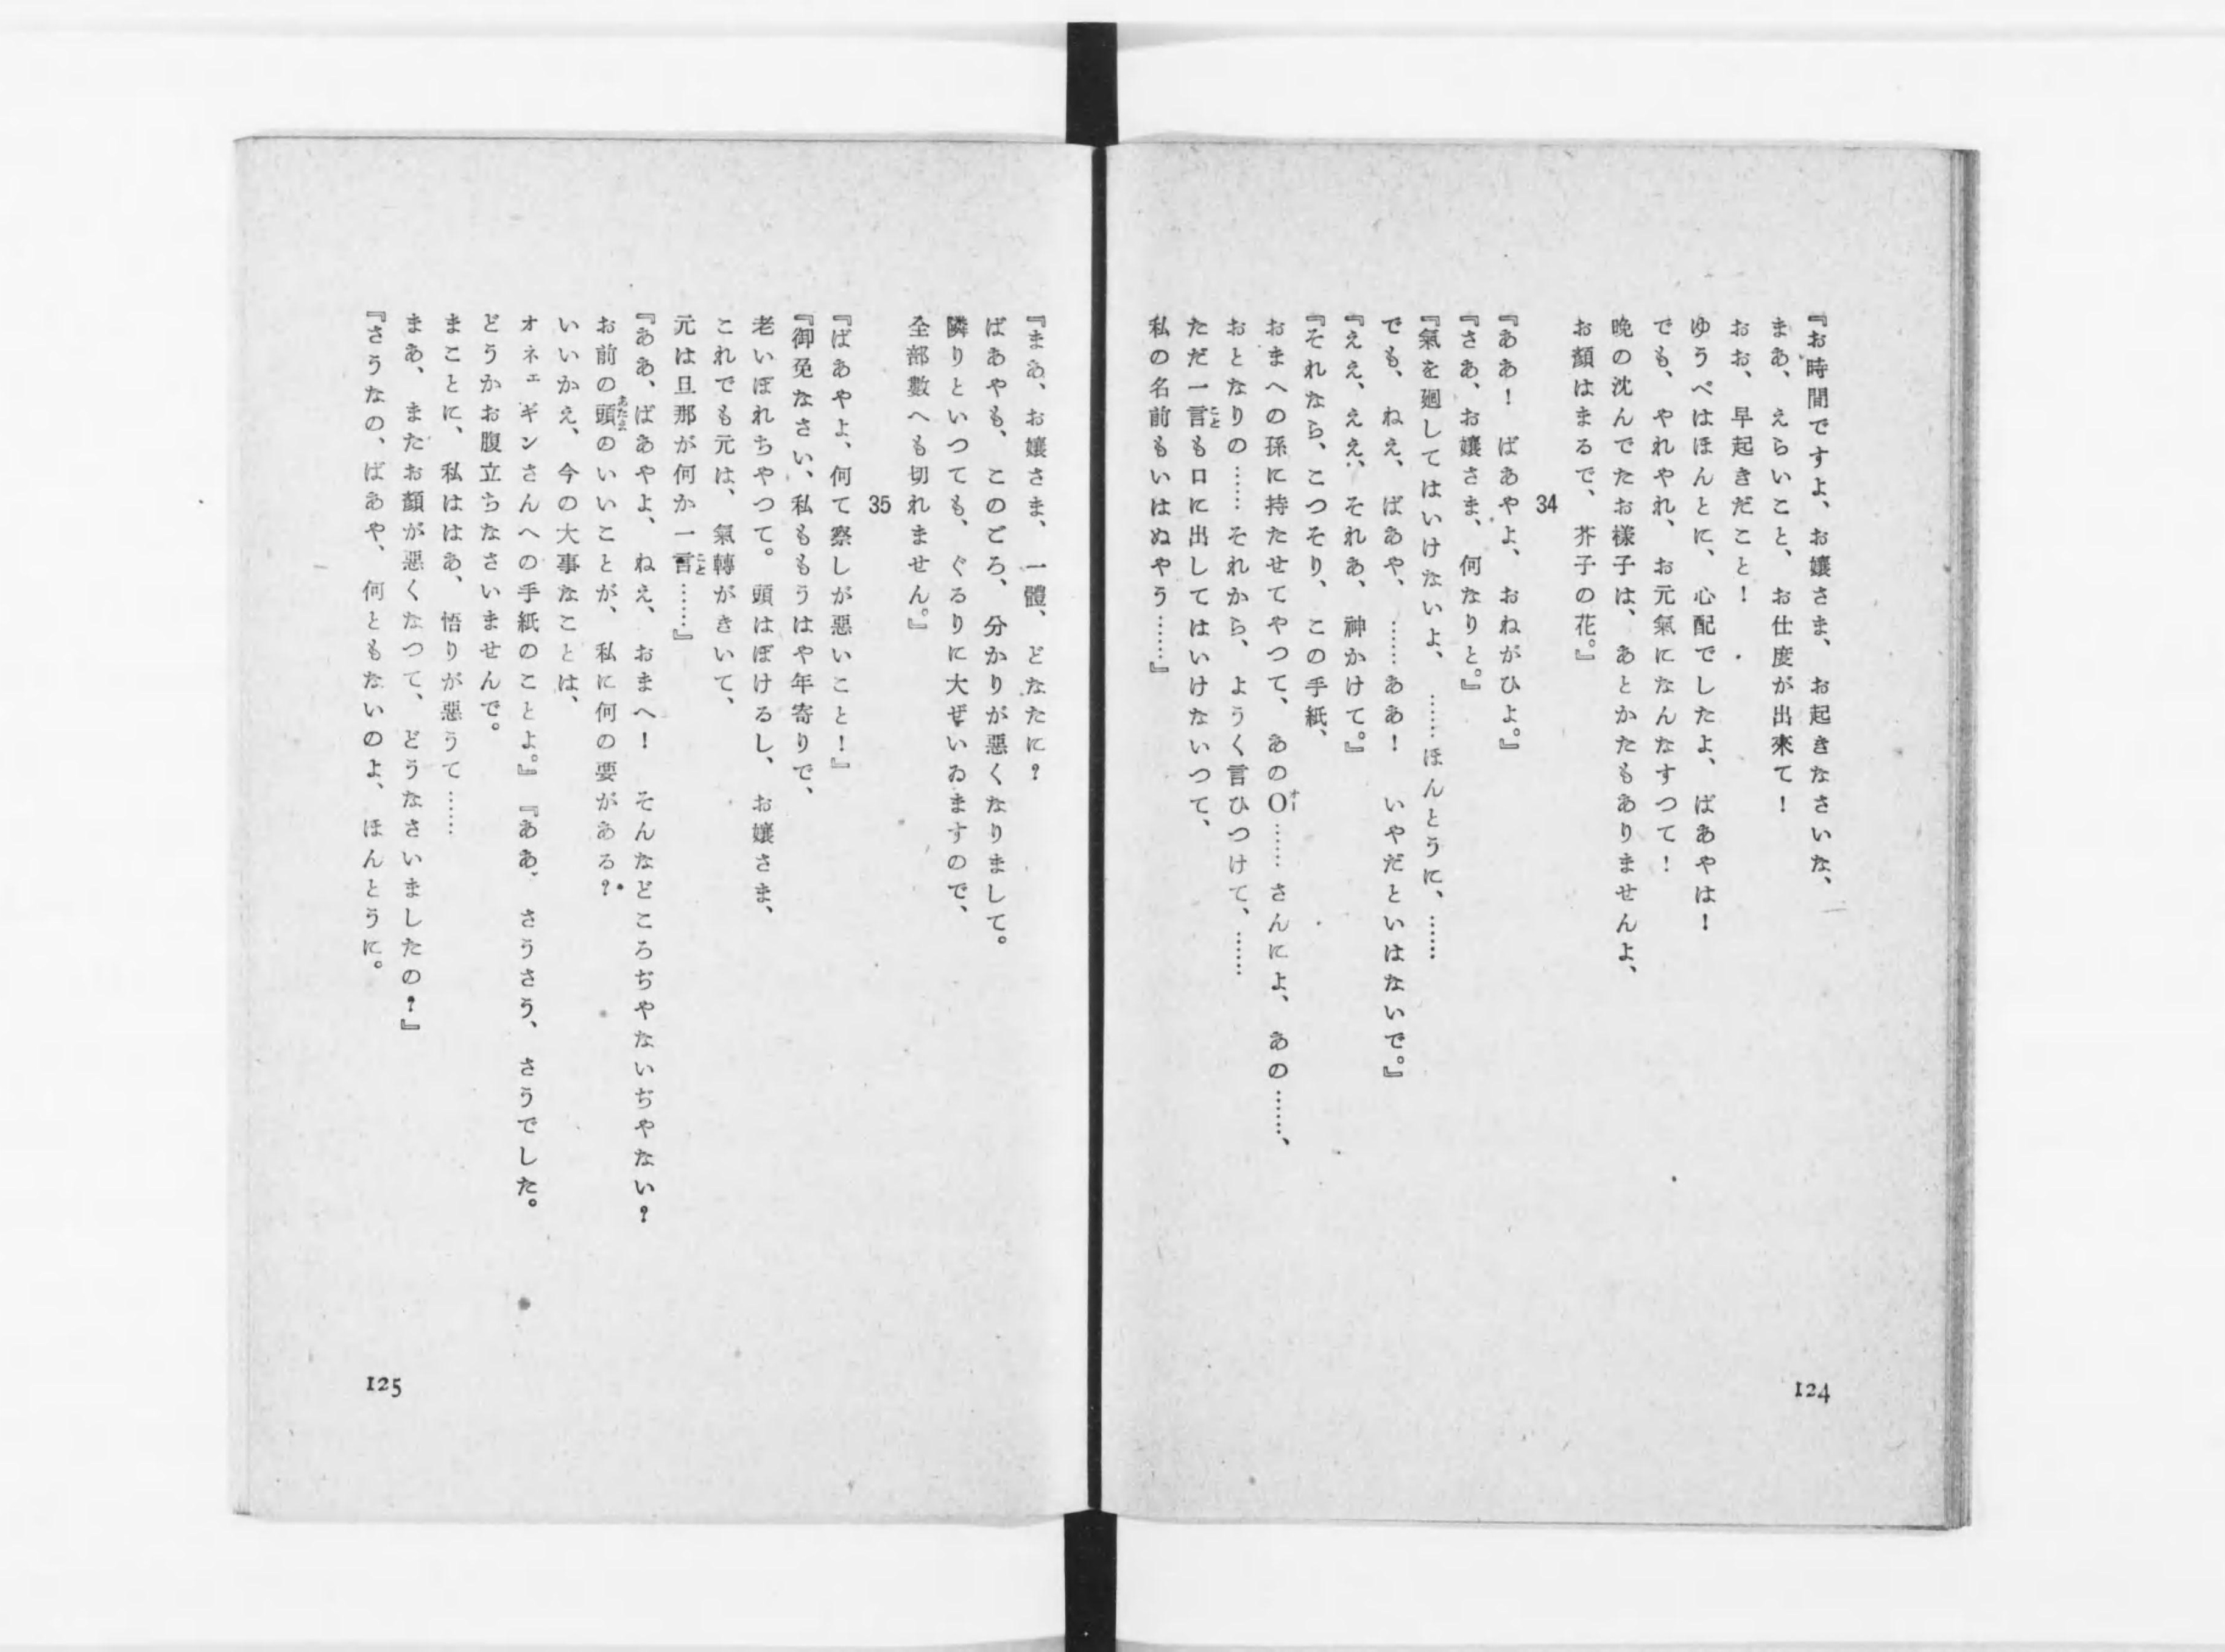 『お時間ですよ、お孃さま、お起きなさいな、
まあ、えらいこと、お仕度が出來て！
おお、早起きだこと！
ゆうべはほんとに、心配でしたよ、ばあやは！
でも、やれやれ、お元氣になんなすつて！
晩の沈んでたお樣子は、あとかたもありませんよ、
お顏はまるで、芥子の花。』
34
『ああ！　ばあやよ、おねがひよ。』
『さあ、お孃さま、何なりと。』
『氣を廻してはいけないよ、……ほんとうに、……
でも、ねえ、ばあや、……ああ！　いやだといはないで。』
『ええ、ええ、それあ、神かけて。』
『それなら、こつそり、この手紙、
おまへの孫に持たせてやつて、あのO……さんによ、あの……、
おとなりの……それから、ようく言ひつけて、……
ただ一言も口に出してはいけないつて、
私の名前もいはぬやう……』
124
『まあ、お孃さま、一體、どなたに？
ばあやも、このごろ、分かりが悪くなりまして。
隣りといつても、ぐるりに大ぜいゐますので、
全部數へも切れません。』
35
『ばあやよ、何て察しが悪いこと！』
『御免なさい、私ももうはや年寄りで、
老いぼれちやつて。頭はぼけるし、お孃さま、
これでも元は、氣轉がきいて、
元は旦那が何か一言……』
『ああ、ばあやよ、ねえ、おまへ！　そんなどころぢやないぢやない？
お前の頭のいいことが、私に何の要がある？
いいかえ、今の大事なことは、
オネェギンさんへの手紙のことよ。』『ああ、さうさう、さうでした。
どうかお腹立ちなさいませんで。
まことに、私ははあ、悟りが悪うて……
まあ、またお顏が悪くなつて、どうなさいましたの？』
『さうなの、ばあや、何ともないのよ、ほんとうに。
125